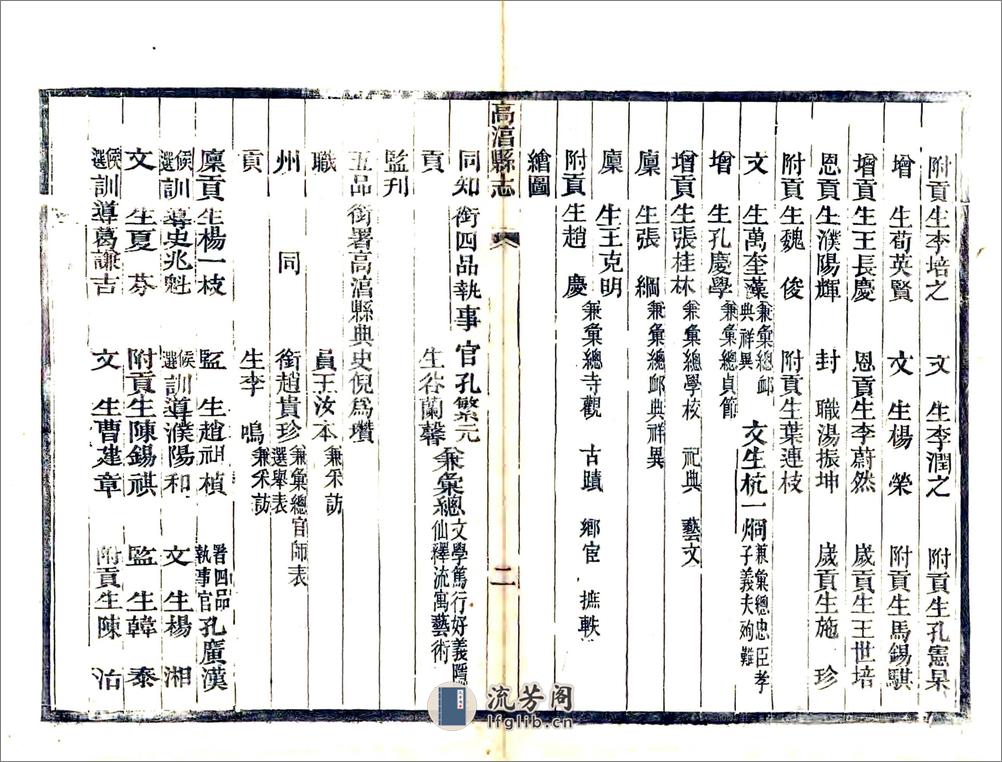 附貢生李培之　文　生李潤之　附貢生孔憲杲
增　生荀英賢　文　生楊　榮　附貢生馬錫騏
增貢生王長慶　恩貢生李蔚然　歲貢生王世培
恩貢生濮陽輝　封　職湯振坤　歲貢生施　珍
附貢生魏　俊　附貢生葉連枝
文　生萬奎藻兼彙總䘏典祥異　文生杭一烱兼彙總忠臣孝子義夫殉難
增　生孔慶學兼彙總貞節
增貢生張桂林兼彙總學校　祀典　藝文
廩　生張　綱兼彙總䘏典祥異
廩　生王克明
附貢生趙　慶兼彙總寺觀　古蹟　鄉宦　摭軼
繪圖
高淳縣志
二
同知銜四品執事官孔繁元
貢　生谷蘭馨兼彙總文學篤行好義隱仙釋流寓藝術
監刊
五品銜署高淳縣典史倪爲瓚
職　員王汝本兼采訪
州　同　銜趙貴珍兼彙總官師表選舉表
貢　生李　鳴兼采訪
廩貢生楊一枝　監　生趙祖楨　署四品執事官孔廣漢
候選訓導史兆魁　候選訓導濮陽和　文　生楊　湘
文　生夏　芬　附貢生陳錫祺　監　生韓　泰
候選訓導葛謙吉　文　生曹建章　附貢生陳　治
流芳阁
lfglib.cn